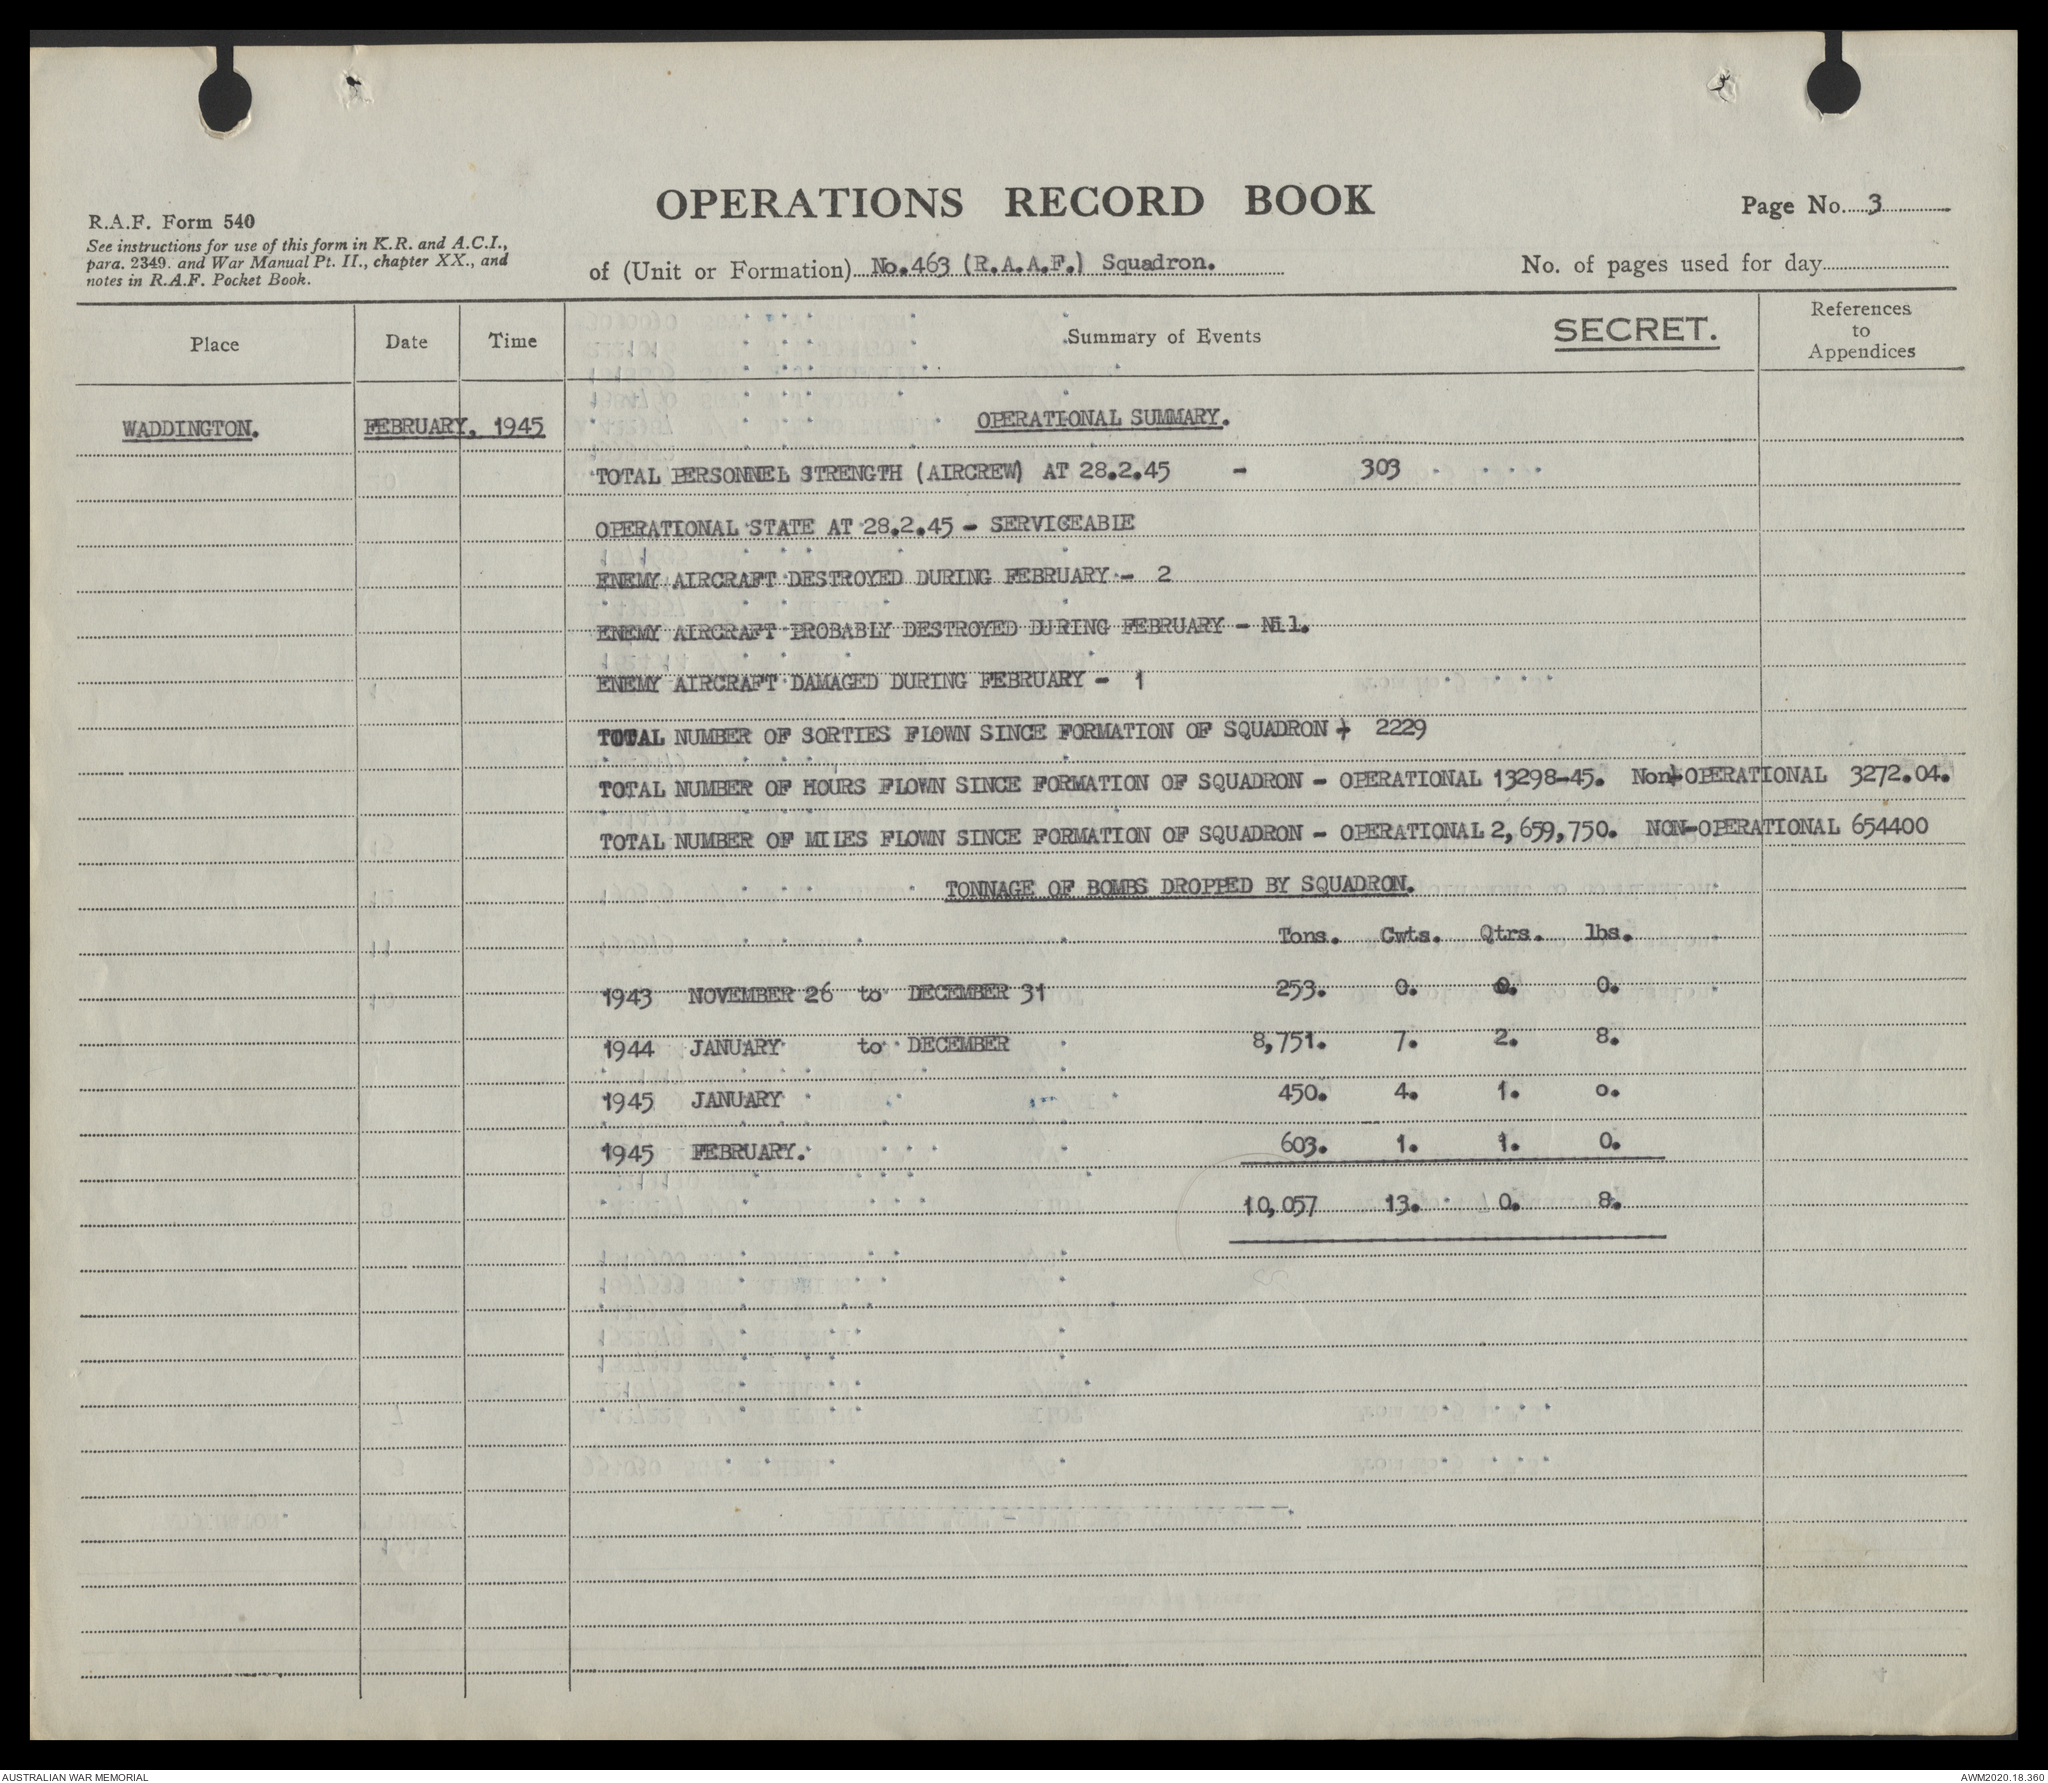 OPERATIONS RECORD BOOK
Page No. 3
R.A.F. Form 540
See instructions for use of this form in K.R. and A.C.I.,
para. 2349. and War Manual Pt. II., chapter XX., and
notes in R.A.F. Pocket Book.
of (Unit or Formation) No.463 (R.A.A.F.) Squadron.
No. of pages used for day
Place Date Time Summary of Events SECRET. References to Appendices
WADDINGTON. FEBRUARY, 1945 OPERATIONAL SUMMARY.
TOTAL PERSONNEL STRENGTH (AIRCREW) AT 28.2.45 - 303
OPERATIONAL STATE AT 28.2.45 - SERVICEABLE
ENEMY AIRCRAFT DESTROYED DURING FEBRUARY - 2
ENEMY AIRCRAFT PROBABLY DESTROYED DURING FEBRUARY - Nil.
ENEMY AIRCRAFT DAMAGED DURING FEBRUARY - 1
TOTAL NUMBER OF SORTIES FLOWN SINCE FORMATION OF SQUADRON - 2229
TOTAL NUMBER OF HOURS FLOWN SINCE FORMATION OF SQUADRON - OPERATIONAL 13298-45. Non-OPERATIONAL 3272.04.
TOTAL NUMBER OF MILES FLOWN SINCE FORMATION OF SQUADRON - OPERATIONAL 2,659,750. NON-OPERATIONAL 654400
TONNAGE OF BOMBS DROPPED BY SQUADRON.
Tons. Cwts. Qtrs. lbs.
1943 NOVEMBER 26 to DECEMBER 31 253. 0. 0. 0.
1944 JANUARY to DECEMBER 8,751. 7. 2. 8.
1945 JANUARY 450. 4. 1. 0.
1945 FEBRUARY. 603. 1. 1. 0.
10,057 13. 0. 8.
AUSTRALIAN WAR MEMORIAL
AWM2020.18.360